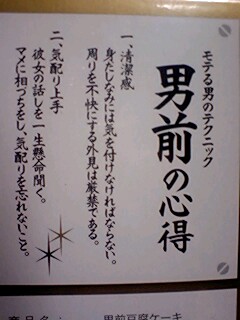 モテる男のテクニック
男前の心得
一、清潔感
身だしなみには気を付けなければならない。
周りを不快にする外見は厳禁である。
二、気配り上手
彼女の話しを一生懸命聞く。
マメに相づちをし、気配りを忘れないこと。
商品名：男前豆腐ケーキ